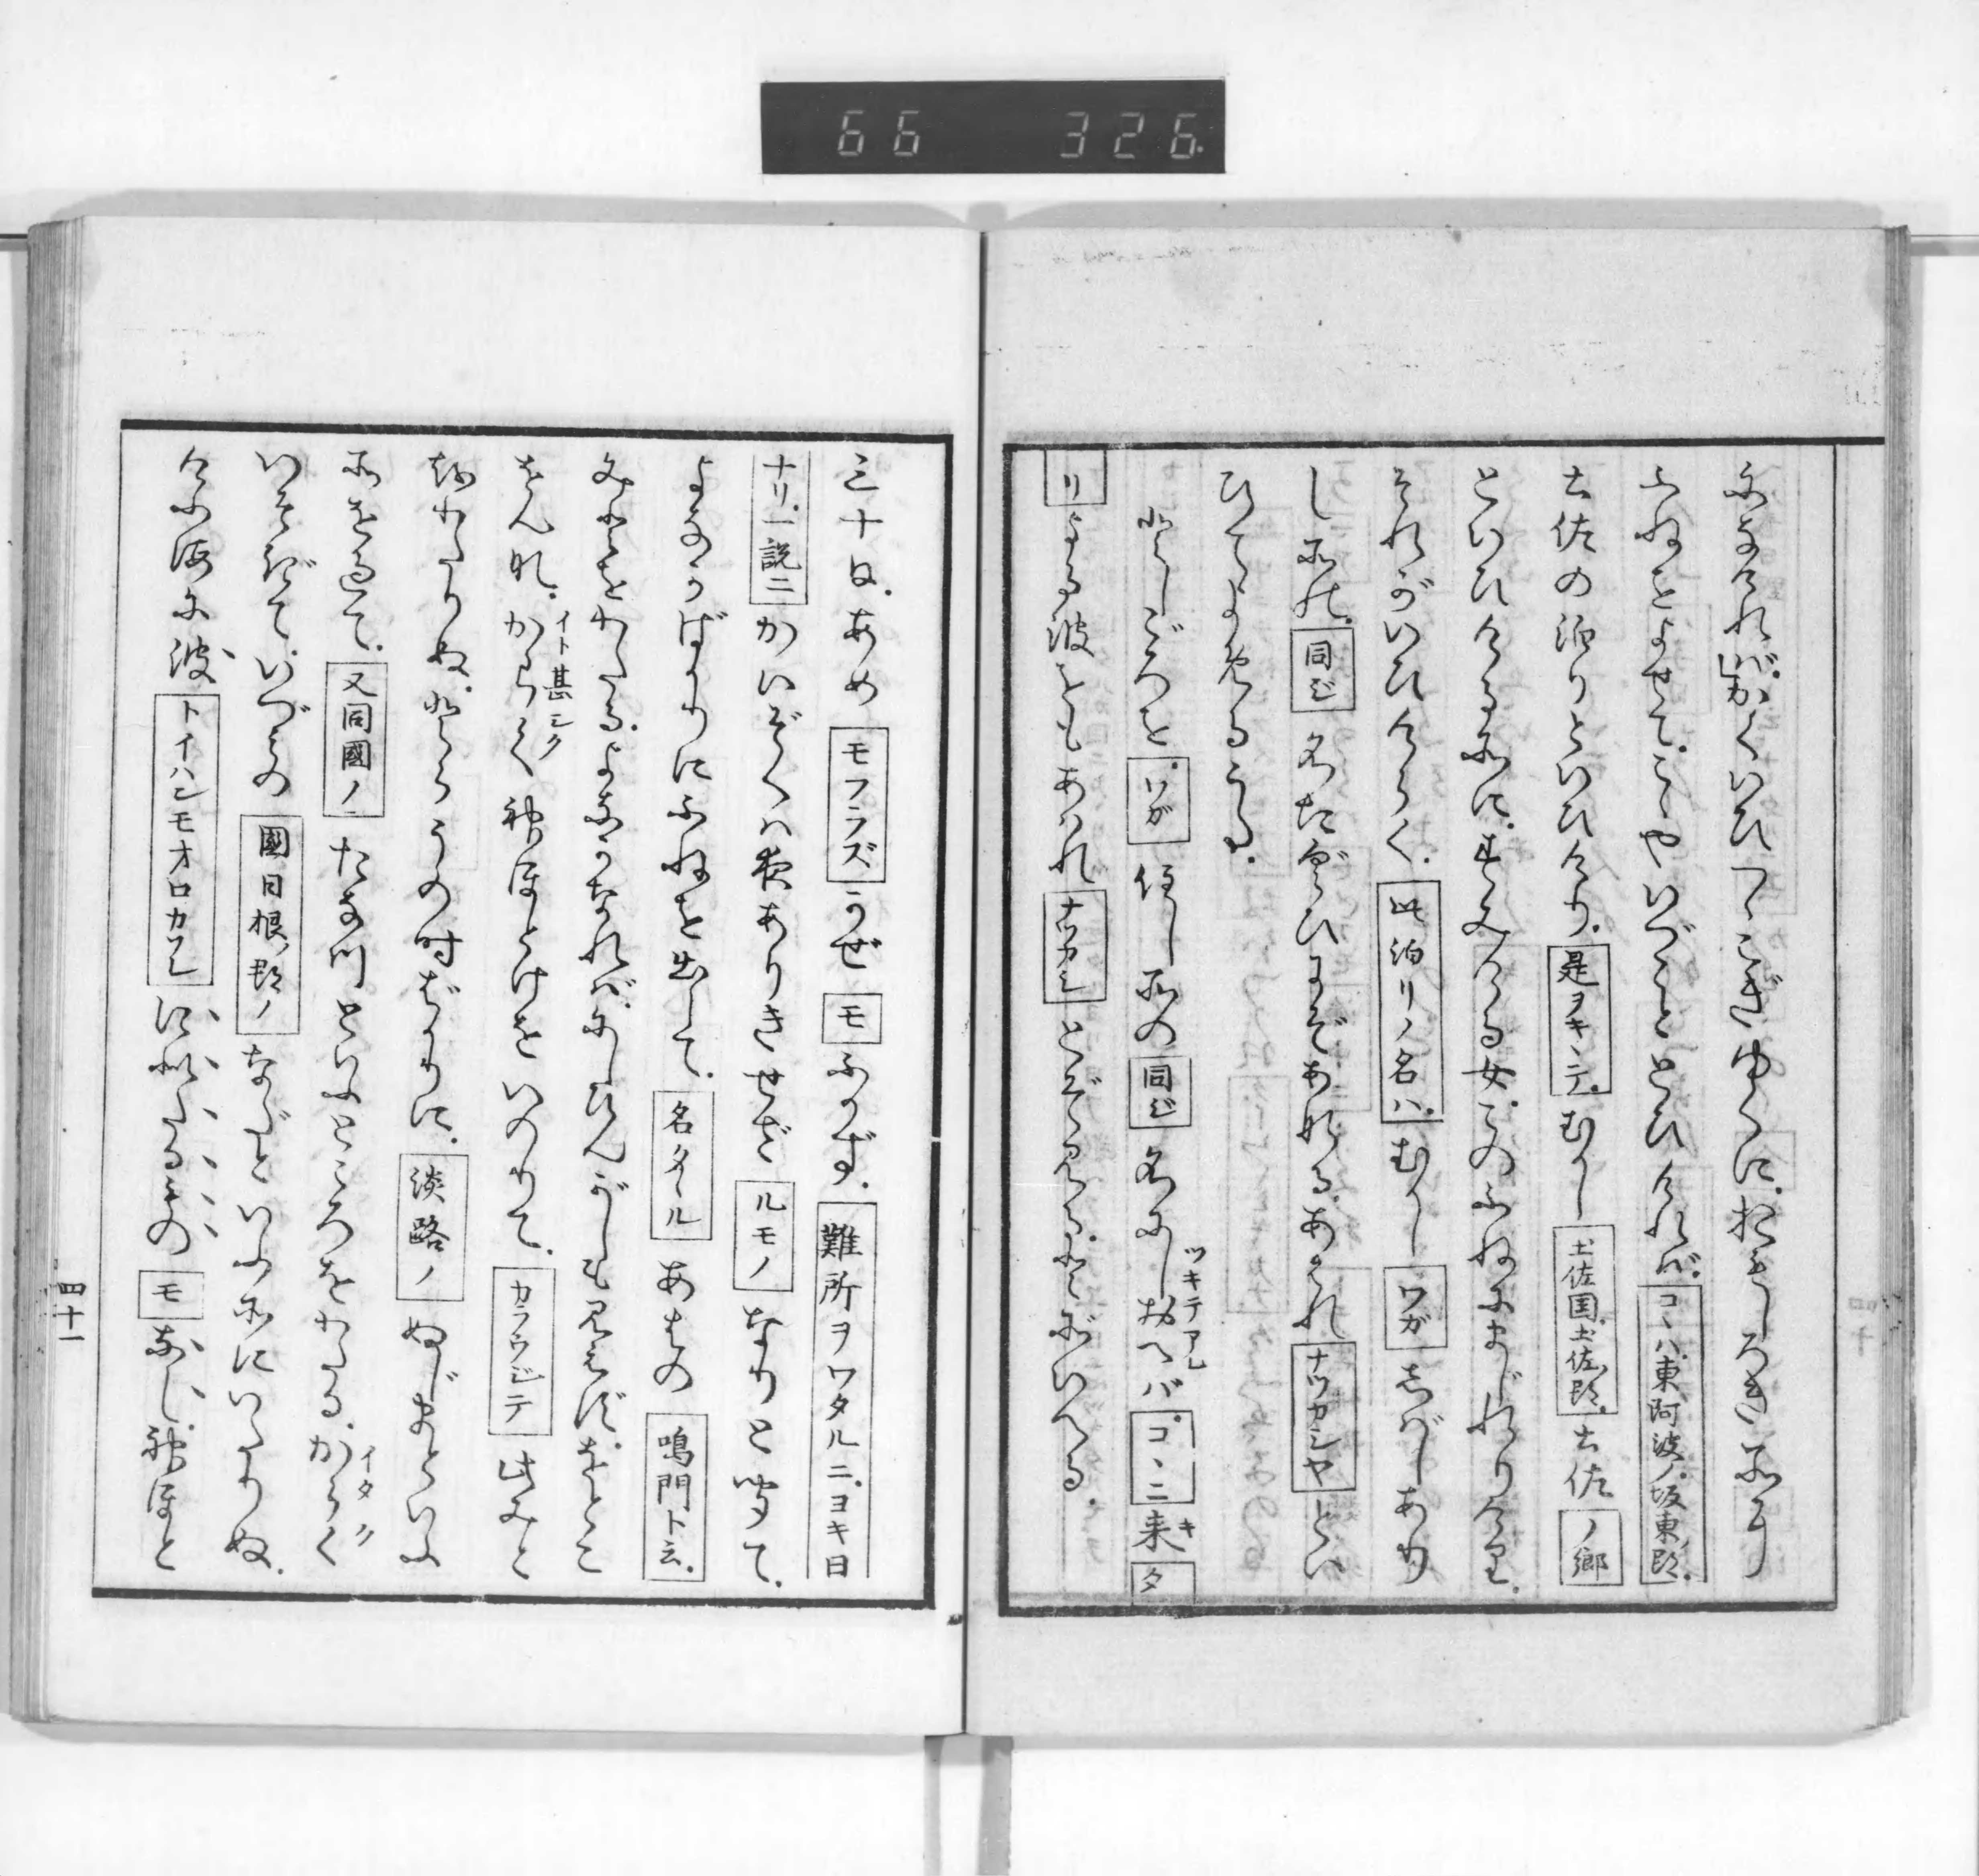 にあなれバ。」かくいひつゝこぎゆくに。おもしろき所に
ふねをよせて。こゝやいづことゝひければ。コヽハ東阿波ノ坂東郡。
土佐の泊りといひけり。是ヲキヽテ。むかし土佐国土佐郡。土佐ノ郷
といひける所に。すみける女。このふねにまじれりけり。
それがいひけらく。此泊リノ名ハ。むかしワガしばしあり
し所の。同ジ名たぐひにぞあなる。あはれナツカシヤとい
ひてよめるうた。
としごろを。ワガ住し所の同ジ名にし於へバ。ツキテアレコヽニ来キタ
リよる波をもあはれナツカシとぞ見る。とぞいへる。
三十日。あめモフラズかぜモふかず。難所ヲワタルニ。ヨキ日
ナリ。一説ニかいぞくハ夜ありきせざルモノなりと聞て。
よなかばかりにふねを出して。名タヽルあはの鳴門ト云。
みとをわたる。よなかなれば。にしひんがしも見えず。をとこ
をんな。からくイト甚シク神ほとけをいのりて。カラウジテ此みと
をわたりぬ。とらうの時ばかりに。淡路ノぬじまといふ
所を過て。又同國ノたな川といふところをわたる。からくイタク
いそぎて。いづみの國日根ノ郡ノなだといふ所にいたりぬ。
けふ海に波トイハンモオロカナレに似たるものモなし。神ほと
四十一
66 326